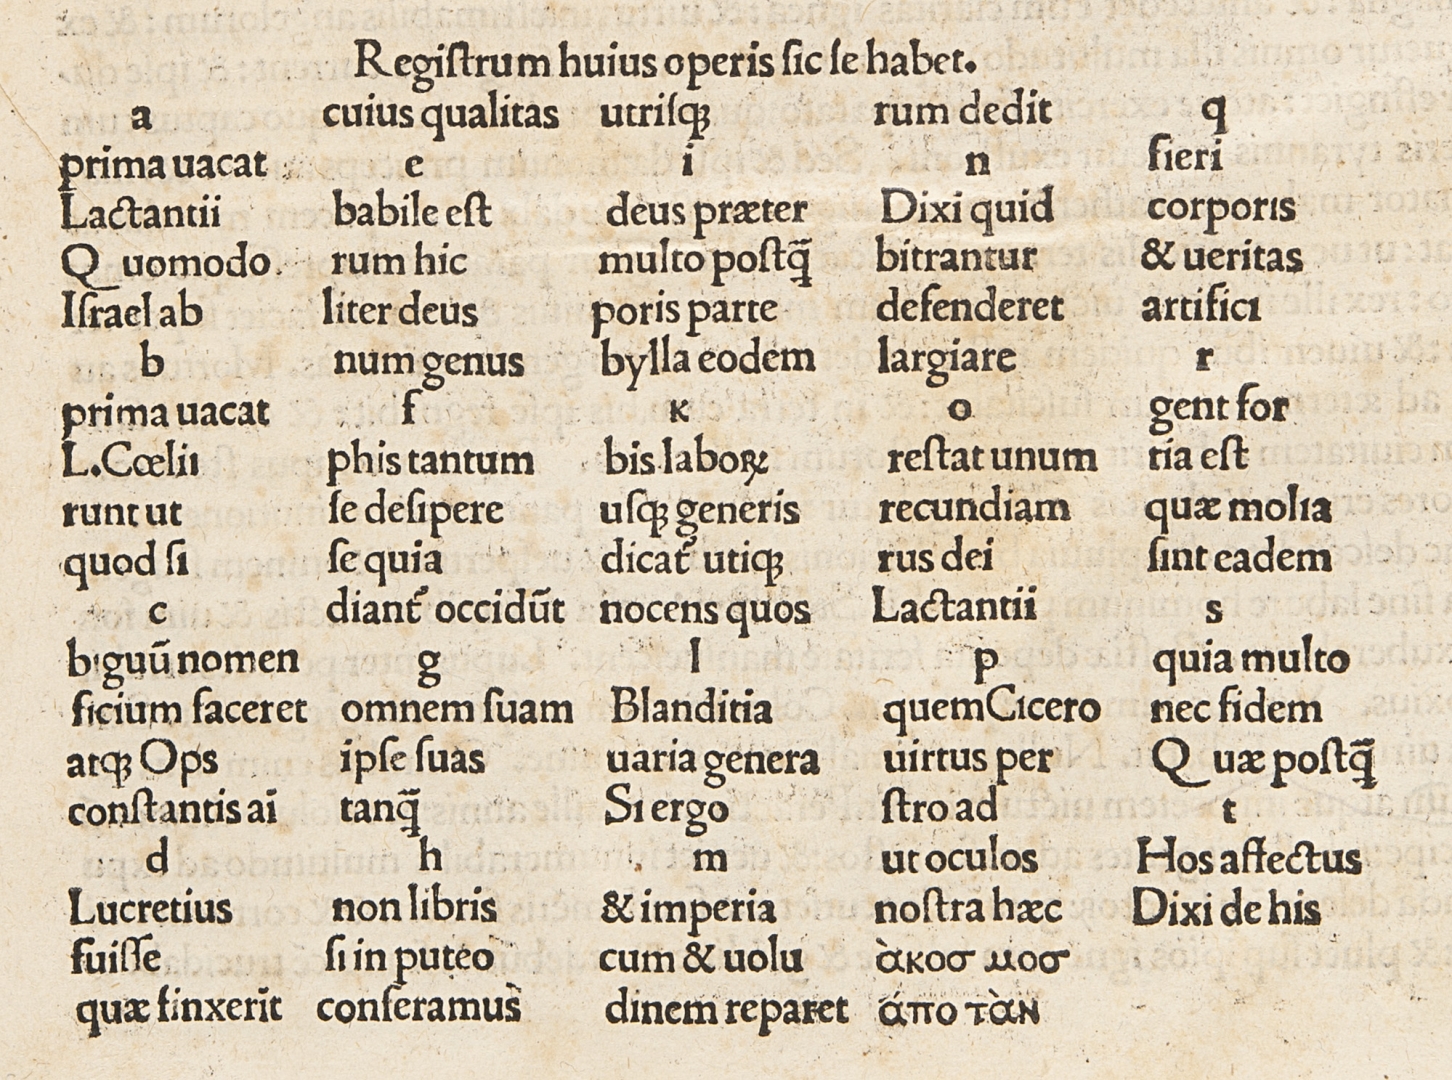 Regiſtrum huius operis ſic ſe habet.
a
prima uacat
Lactantii
Quomodo
Iſrael ab
b
prima uacat
L.Cœlii
runt ut
quod ſi
c
biguū nomen
ficium faceret
atqꝫ Ops
conſtantis ai
d
Lucretius
fuiſſe
quæ finxerit
cuius qualitas
e
babile eſt
rum hic
liter deus
num genus
f
phis tantum
ſe deſipere
ſe quia
diant᷑ occidūt
g
omnem ſuam
ipſe ſuas
tanq̄
h
non libris
ſi in puteo
conſeramus
utriſqꝫ
i
deus præter
multo poſtq̄
poris parte
bylla eodem
κ
bis laboꝝ
uſqꝫ generis
dicat᷑ utiqꝫ
nocens quos
l
Blanditia
uaria genera
Si ergo
m
& imperia
cum & uolu
dinem reparet
rum dedit
n
Dixi quid
bitrantur
defenderet
largiare
o
reſtat unum
recundiam
rus dei
Lactantii
p
quem Cicero
uirtus per
ſtro ad
ut oculos
noſtra hæc
ὰκοσ μοσ
άπο τὰν
q
fieri
corporis
& ueritas
artifici
r
gent for
ria eſt
quæ molia
ſint eadem
s
quia multo
nec fidem
Quæ poſtq̄
t
Hos affectus
Dixi de his